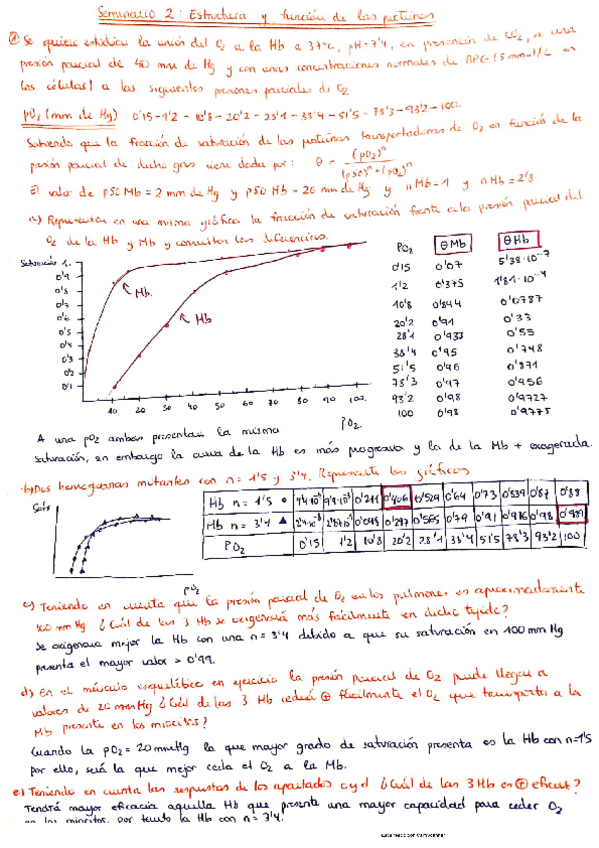 Seminario 2: Estructura y función de las proteínas
① Se quiere estudiar la unión del O₂ a la Hb a 37ºC, pH=7'4, en presencia de CO₂, a una
presión parcial de 40 mm de Hg y con unas concentraciones normales de BPG (5 mmol/L en
las células) a las siguientes presiones parciales de O₂.
pO₂ (mm de Hg) 0'15-1'2-10'8-20'2-28'1-38'4-51'5-78'3-93'2-100.
Sabiendo que la fracción de saturación de las proteínas transportadoras de O₂ en función de la
presión parcial de dicho gas viene dada por: θ = (pO₂)ⁿ / (p50)ⁿ+(pO₂)ⁿ
El valor de p50 Mb = 2 mm de Hg y p50 Hb - 26 mm de Hg y n Mb-1 y n Hb = 2'8
a) Representa en una misma gráfica la fracción de saturación frente a la presión parcial del
O₂ de la Hb y Mb y comenta las diferencias.
Saturación 1.
0'9
0'8
0'7
0'6
0'5
0'4
0'3
0'2
0'1
Mb.
Hb
10 20 30 40 50 60 70 80 90 100.
pO₂.
PO₂ θMb θHb
0'15 0'07 5'38·10⁻⁷
1'2 0'375 1'81·10⁻⁴
10'8 0'844 0'0787
20'2 0'91 0'33
28'1 0'933 0'55
38'4 0'95 0'748
51'5 0'96 0'871
78'3 0'97 0'956
93'2 0'98 0'9727
100 0'98 0'9775
A una pO₂ ambas presentan la misma
saturación, sin embargo la curva de la Hb es más progresiva y la de la Mb + exagerada.
b) Dos hemoglobinas mutantes con n = 1'5 y 3'4. Representa las gráficas
pO₂
Hb n = 1'5 0'406 0'529 0'64 0'73 0'839 0'87 0'88
Hb n = 3'4 0'048 0'297 0'565 0'79 0'91 0'976 0'98 0'989
PO₂ 0'15 1'2 10'8 20'2 28'1 38'4 51'5 78'3 93'2 100
c) Teniendo en cuenta que la presión parcial de O₂ en los pulmones es aproximadamente
100 mm Hg ¿Cuál de las 3 Hb se oxigenará más fácilmente en dicho tejido?
Se oxigenará mejor la Hb con una n = 3'4 debido a que su saturación en 100 mm Hg
presenta el mayor valor > 0'99.
d) En el músculo esquelético en ejercicio la presión parcial de O₂ puede llegar a
valores de 20 mm Hg ¿Cuál de las 3 Hb cederá ⊕ fácilmente el O₂ que transporta a la
Mb presente en los miocitos?
Cuando la pO₂ = 20 mmHg la que mayor grado de saturación presenta es la Hb con n=1'5
por ello, será la que mejor ceda el O₂ a la Mb.
e) Teniendo en cuenta las respuestas de los apartados c y d ¿Cuál de las 3 Hb es ⊕ eficaz?
Tendrá mayor eficacia aquella Hb que presente una mayor capacidad para ceder O₂
en los miocitos, por tanto la Hb con n = 3'4.